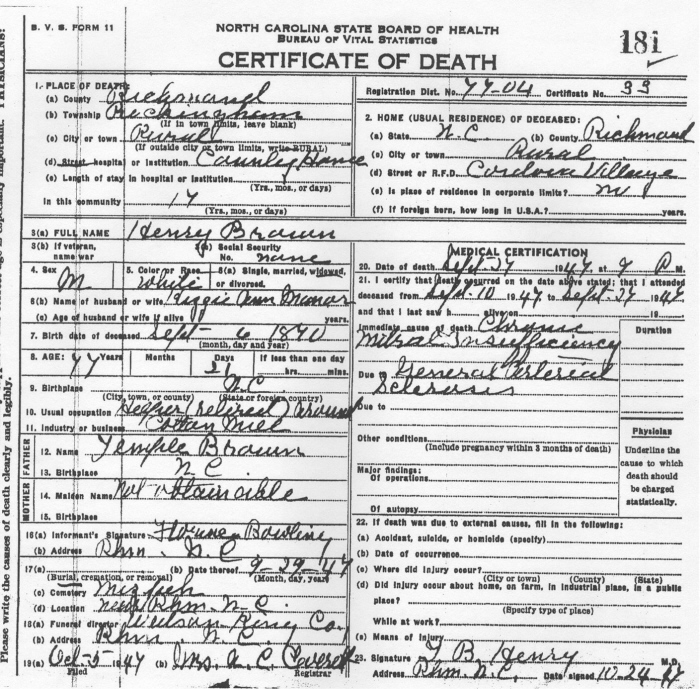 B. V. S. FORM 11
NORTH CAROLINA STATE BOARD OF HEALTH
BUREAU OF VITAL STATISTICS
181
CERTIFICATE OF DEATH
Please write the causes of death clearly and legibly.
important. PHYSICIANS:
1. PLACE OF DEATH:
(a) County Richmond
(b) Township Rockingham
(If in town limits, leave blank)
(c) City or town Rural
(If outside city or town limits, write RURAL)
(d) Street, hospital or institution County Home
(e) Length of stay in hospital or institution
(Yrs., mos., or days)
In this community 17
(Yrs., mos., or days)
Registration Dist. No. 77-04 Certificate No. 33
2. HOME (USUAL RESIDENCE) OF DECEASED:
(a) State N.C. (b) County Richmond
(c) City or town Rural
(d) Street or R.F.D. Cordova Village
(e) Is place of residence in corporate limits? no
(f) If foreign born, how long in U.S.A.? years.
3(a) FULL NAME Henry Brown
3(b) If veteran, name war
3(c) Social Security No. none
4. Sex M
5. Color or Race white
6(a) Single, married, widowed, or divorced.
6(b) Name of husband or wife Ann
(c) Age of husband or wife if alive years.
7. Birth date of deceased Sept- 6 1870
(month, day and year)
8. AGE: 77 Months Days 21 If less than one day
hrs. mins.
9. Birthplace N.C.
(City, town, or county) (State or foreign country)
10. Usual occupation Helper (retired) around
11. Industry or business Cotton Mill
FATHER
12. Name Temple Brown
13. Birthplace N.C.
MOTHER
14. Maiden Name Not-obtainable
15. Birthplace
16(a) Informant's Signature Bowling
(b) Address Rhm. N.C
17(a) (b) Date thereof 9-29-47
(Burial, cremation, or removal) (Month, day, year)
(c) Cemetery Mizpah
(d) Location near Rhm. N.C.
18(a) Funeral director Watson King Co
(b) Address Rhm. N.C.
19(a) Oct-5 1947 (b) Mrs. N.C.
Filed Registrar
MEDICAL CERTIFICATION
20. Date of death Sept-27 1947 at 9 P.M.
21. I certify that death occurred on the date above stated; that I attended
deceased from Sept-10 1947 to Sept-27 1947
and that I last saw h alive on 19
Immediate cause of death Chronic
Mitral Insufficiency
Duration
Due to General Arterial
Sclerosis
Due to
Other conditions
(Include pregnancy within 3 months of death)
Major findings:
Of operations
Of autopsy
Physician
Underline the
cause to which
death should
be charged
statistically.
22. If death was due to external causes, fill in the following:
(a) Accident, suicide, or homicide (specify)
(b) Date of occurrence
(c) Where did injury occur?
(City or town) (County) (State)
(d) Did injury occur about home, on farm, in industrial place, in a public
place?
(Specify type of place)
While at work?
(e) Means of injury
23. Signature T B Henry M.D.
Address Rhm. N.C. Date signed 10-24-47